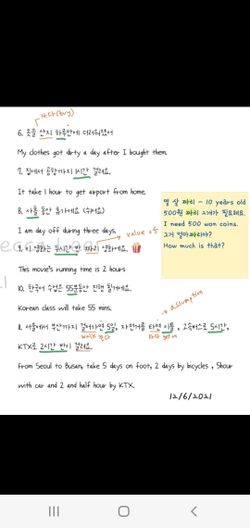 사다(buy)
6. 옷을 산지 하루만에 더러워졌어
My clothes got dirty a day after I bought them.
7. 집에서 공항까지 1시간 걸려요.
It take 1 hour to get airport from home.
8. 사흘 동안 휴가예요 (쉬어요)
I am day off during three days.
value
9. 이 영화는 두시간 반 따리 영화예요.
This movie's running time is 2 hours
10. 한국어 수업은 55분동안 진행 될거예요.
Korean class will take 55 mins.
assumption
11. 서울에서 부산까지 걸어가면 5일, 자전거를 타면 이틀,
자동차로 5시간,
KTX로 2시간 반이 걸려요.
From Seoul to Busan, take 5 days on foot, 2 days by bicycles, 5hour
with car and 2 and half hour by KTX.
열 살 짜리 - 10 years old
500원 짜리 2개가 필요해요.
I need 500 won coins.
그거 얼마짜리야?
How much is that?
12/6/2021